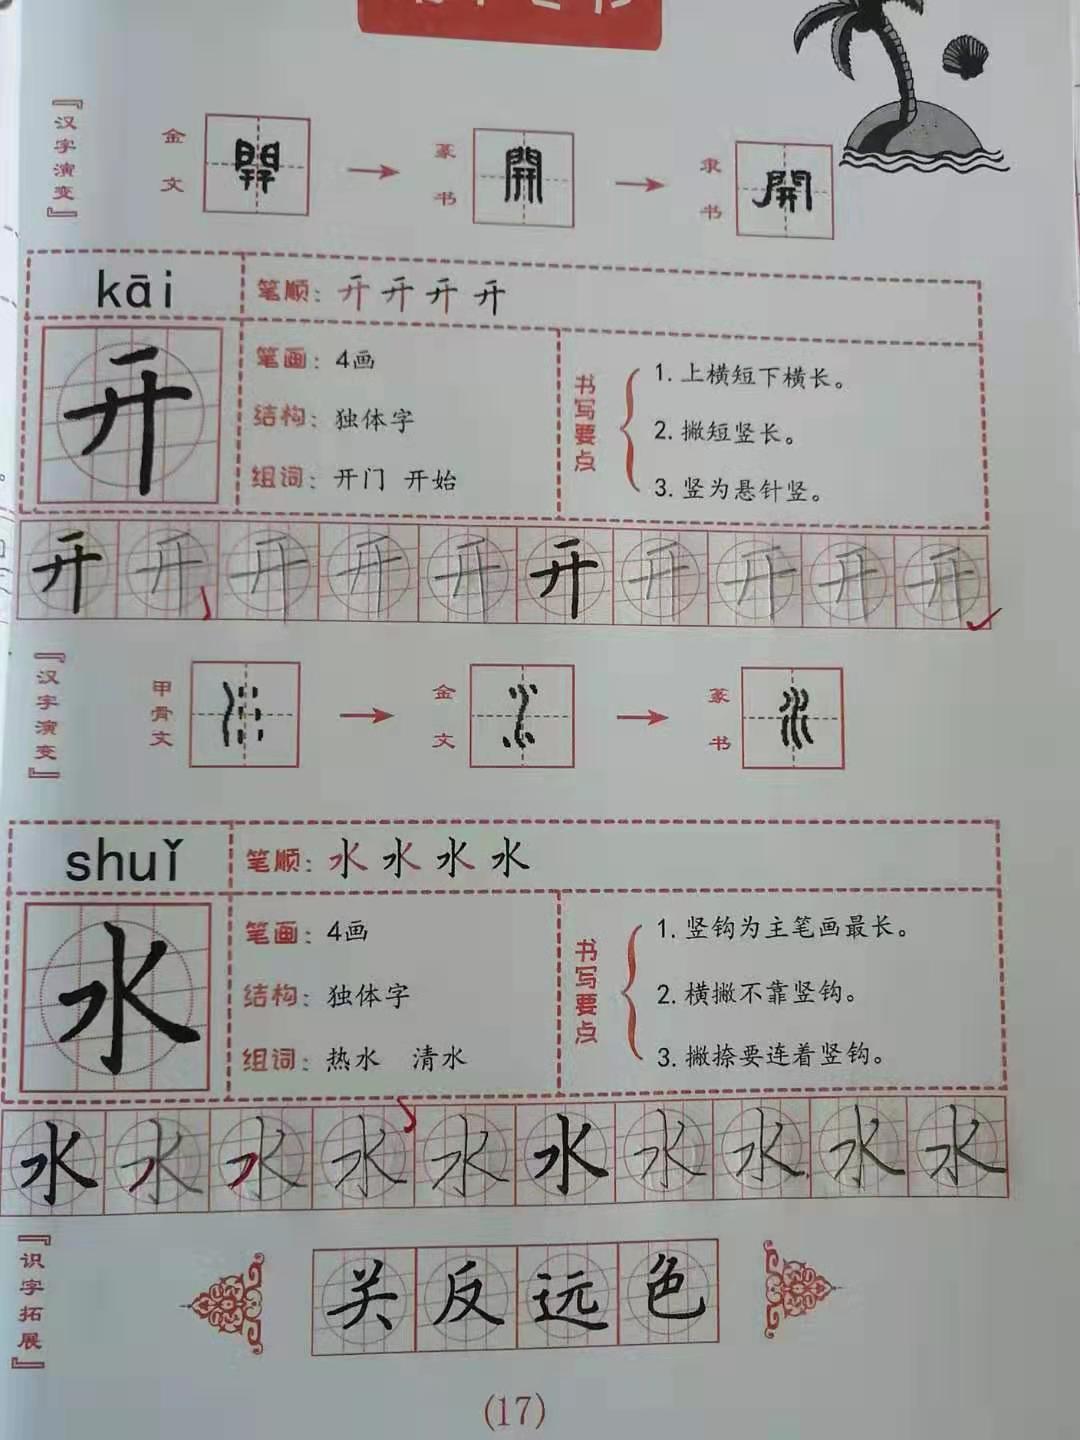 『汉字演变』
金文 開 → 篆书 開 → 隶书 開
kāi
笔顺：开 开 开 开
开
笔画：4画
结构：独体字
组词：开门 开始
书写要点
1. 上横短下横长。
2. 撇短竖长。
3. 竖为悬针竖。
开 开 开 开 开 开 开 开 开 开
『汉字演变』
甲骨文 水 → 金文 水 → 篆书 水
shuǐ
笔顺：水 水 水 水
水
笔画：4画
结构：独体字
组词：热水 清水
书写要点
1. 竖钩为主笔画最长。
2. 横撇不靠竖钩。
3. 撇捺要连着竖钩。
水 水 水 水 水 水 水 水 水 水
『识字拓展』
关 反 远 色
(17)